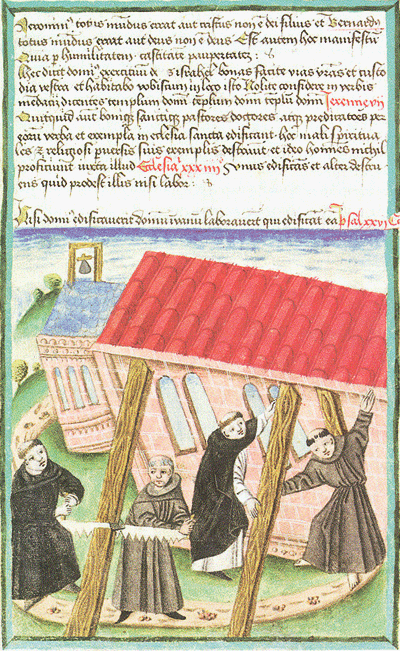 Jeronim⁹ totus mūdus errat aut cristus non ē dei filius et Bernardꝰ
totus mūdus errat aut deus non ē deus Est autem hoc manifestū
Quia p humilitatem castitatem paupertatem :
Hec dicit domin⁹ exercituū d⁹s israhel bonas facite vias vr̄as et stu
dia vestra et habitabo vobiscum in loco isto Nolite confidere in verbis
mēdacii dicentes templum domī templum domī templū domī Jeremie vii
Quitquid aut boniqȝ sanctiqȝ pastores doctores atqȝ predicatores per
eorū verba et exempla in ecclesia sancta edificant hoc mali spiritua
les et religiosi pversis suis exemplis destruūt et ideo homines nichil
proficiunt iuxta illud Eclesia xxxiiii° Unus edificās et alter destru
ens quid prodest illis nisi labor :
Nisi domin⁹ edificaverit domū invanū laboraverūt qui edificāt eā psal xxvi C